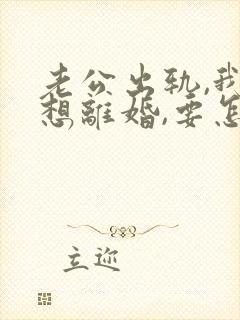 老公出轨,我
想離婚,要怎
立迩